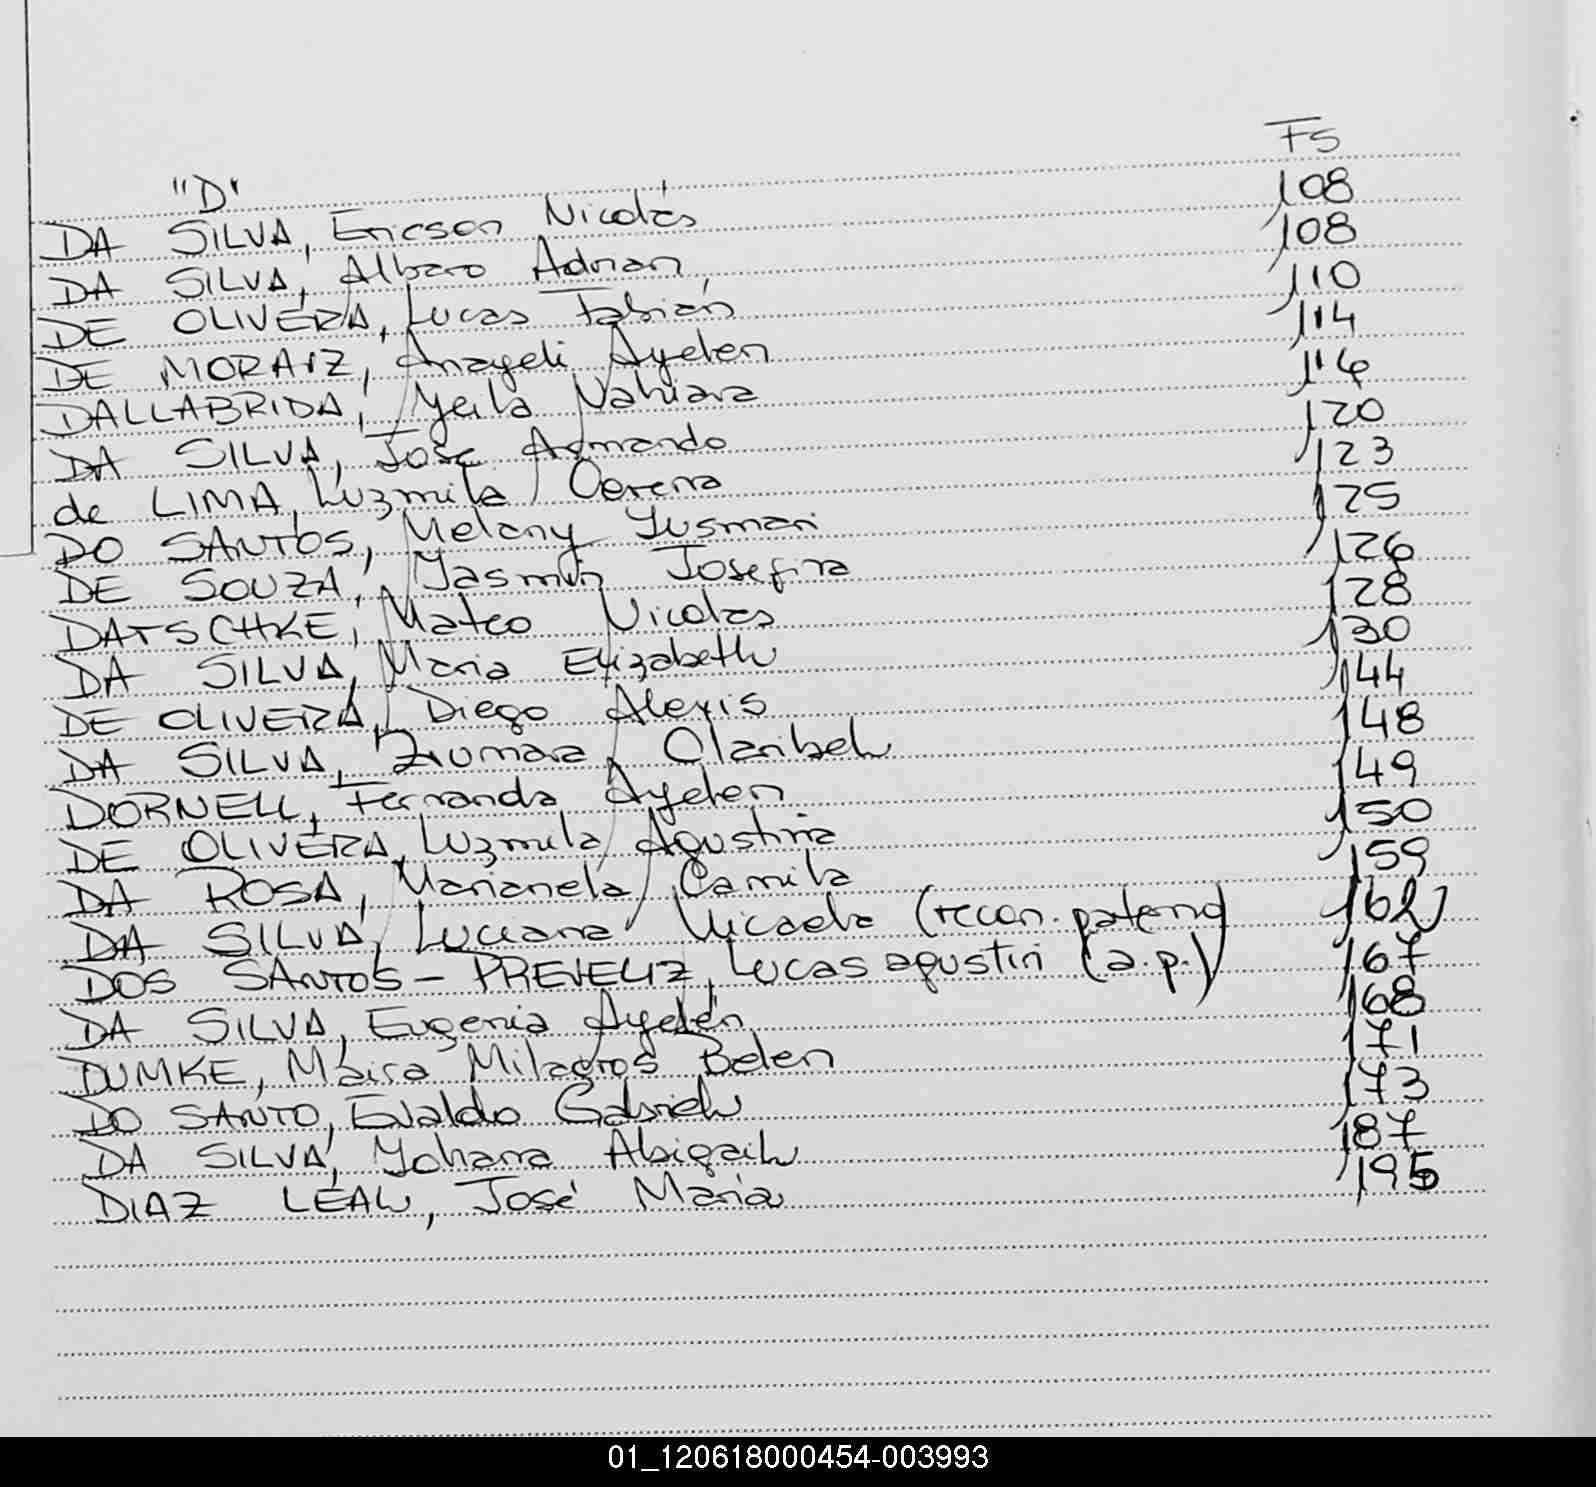 Fs
"D"
DA SILVA, Ericson Nicolás 108
DA SILVA, Albaro Adrian 108
DE OLIVERA, Lucas Fabián 110
DE MORAIZ, Anayeli Ayelen 114
DALLABRIDA, Yeila Nahiara 116
DA SILVA, Jose Armando 120
de LIMA, Luzmila 123
DO SANTOS, Melany Yusmari 125
DE SOUZA, Yasmin Josefina 126
DATSCHKE, Mateo Nicolas 128
DA SILVA, Maria Elizabeth 130
DE OLIVERA, Diego Alexis 144
DA SILVA, Claribel 148
DORNELL, Fernanda Ayelen 149
DE OLIVERA, Luzmila Agustina 150
DA ROSA, Marianela Camila 159
DA SILVA, Luciana Micaela (recon. paterno) 162
DOS SANTOS - PREVELIZ, Lucas agustin (a.p.) 167
DA SILVA, Eugenia Ayelén 168
DUMKE, Maira Milagros Belen 171
DO SANTO, Evaldo Gabriel 173
DA SILVA, Yohana Abigail 187
DIAZ LEAL, José Maria 195
01_120618000454-003993